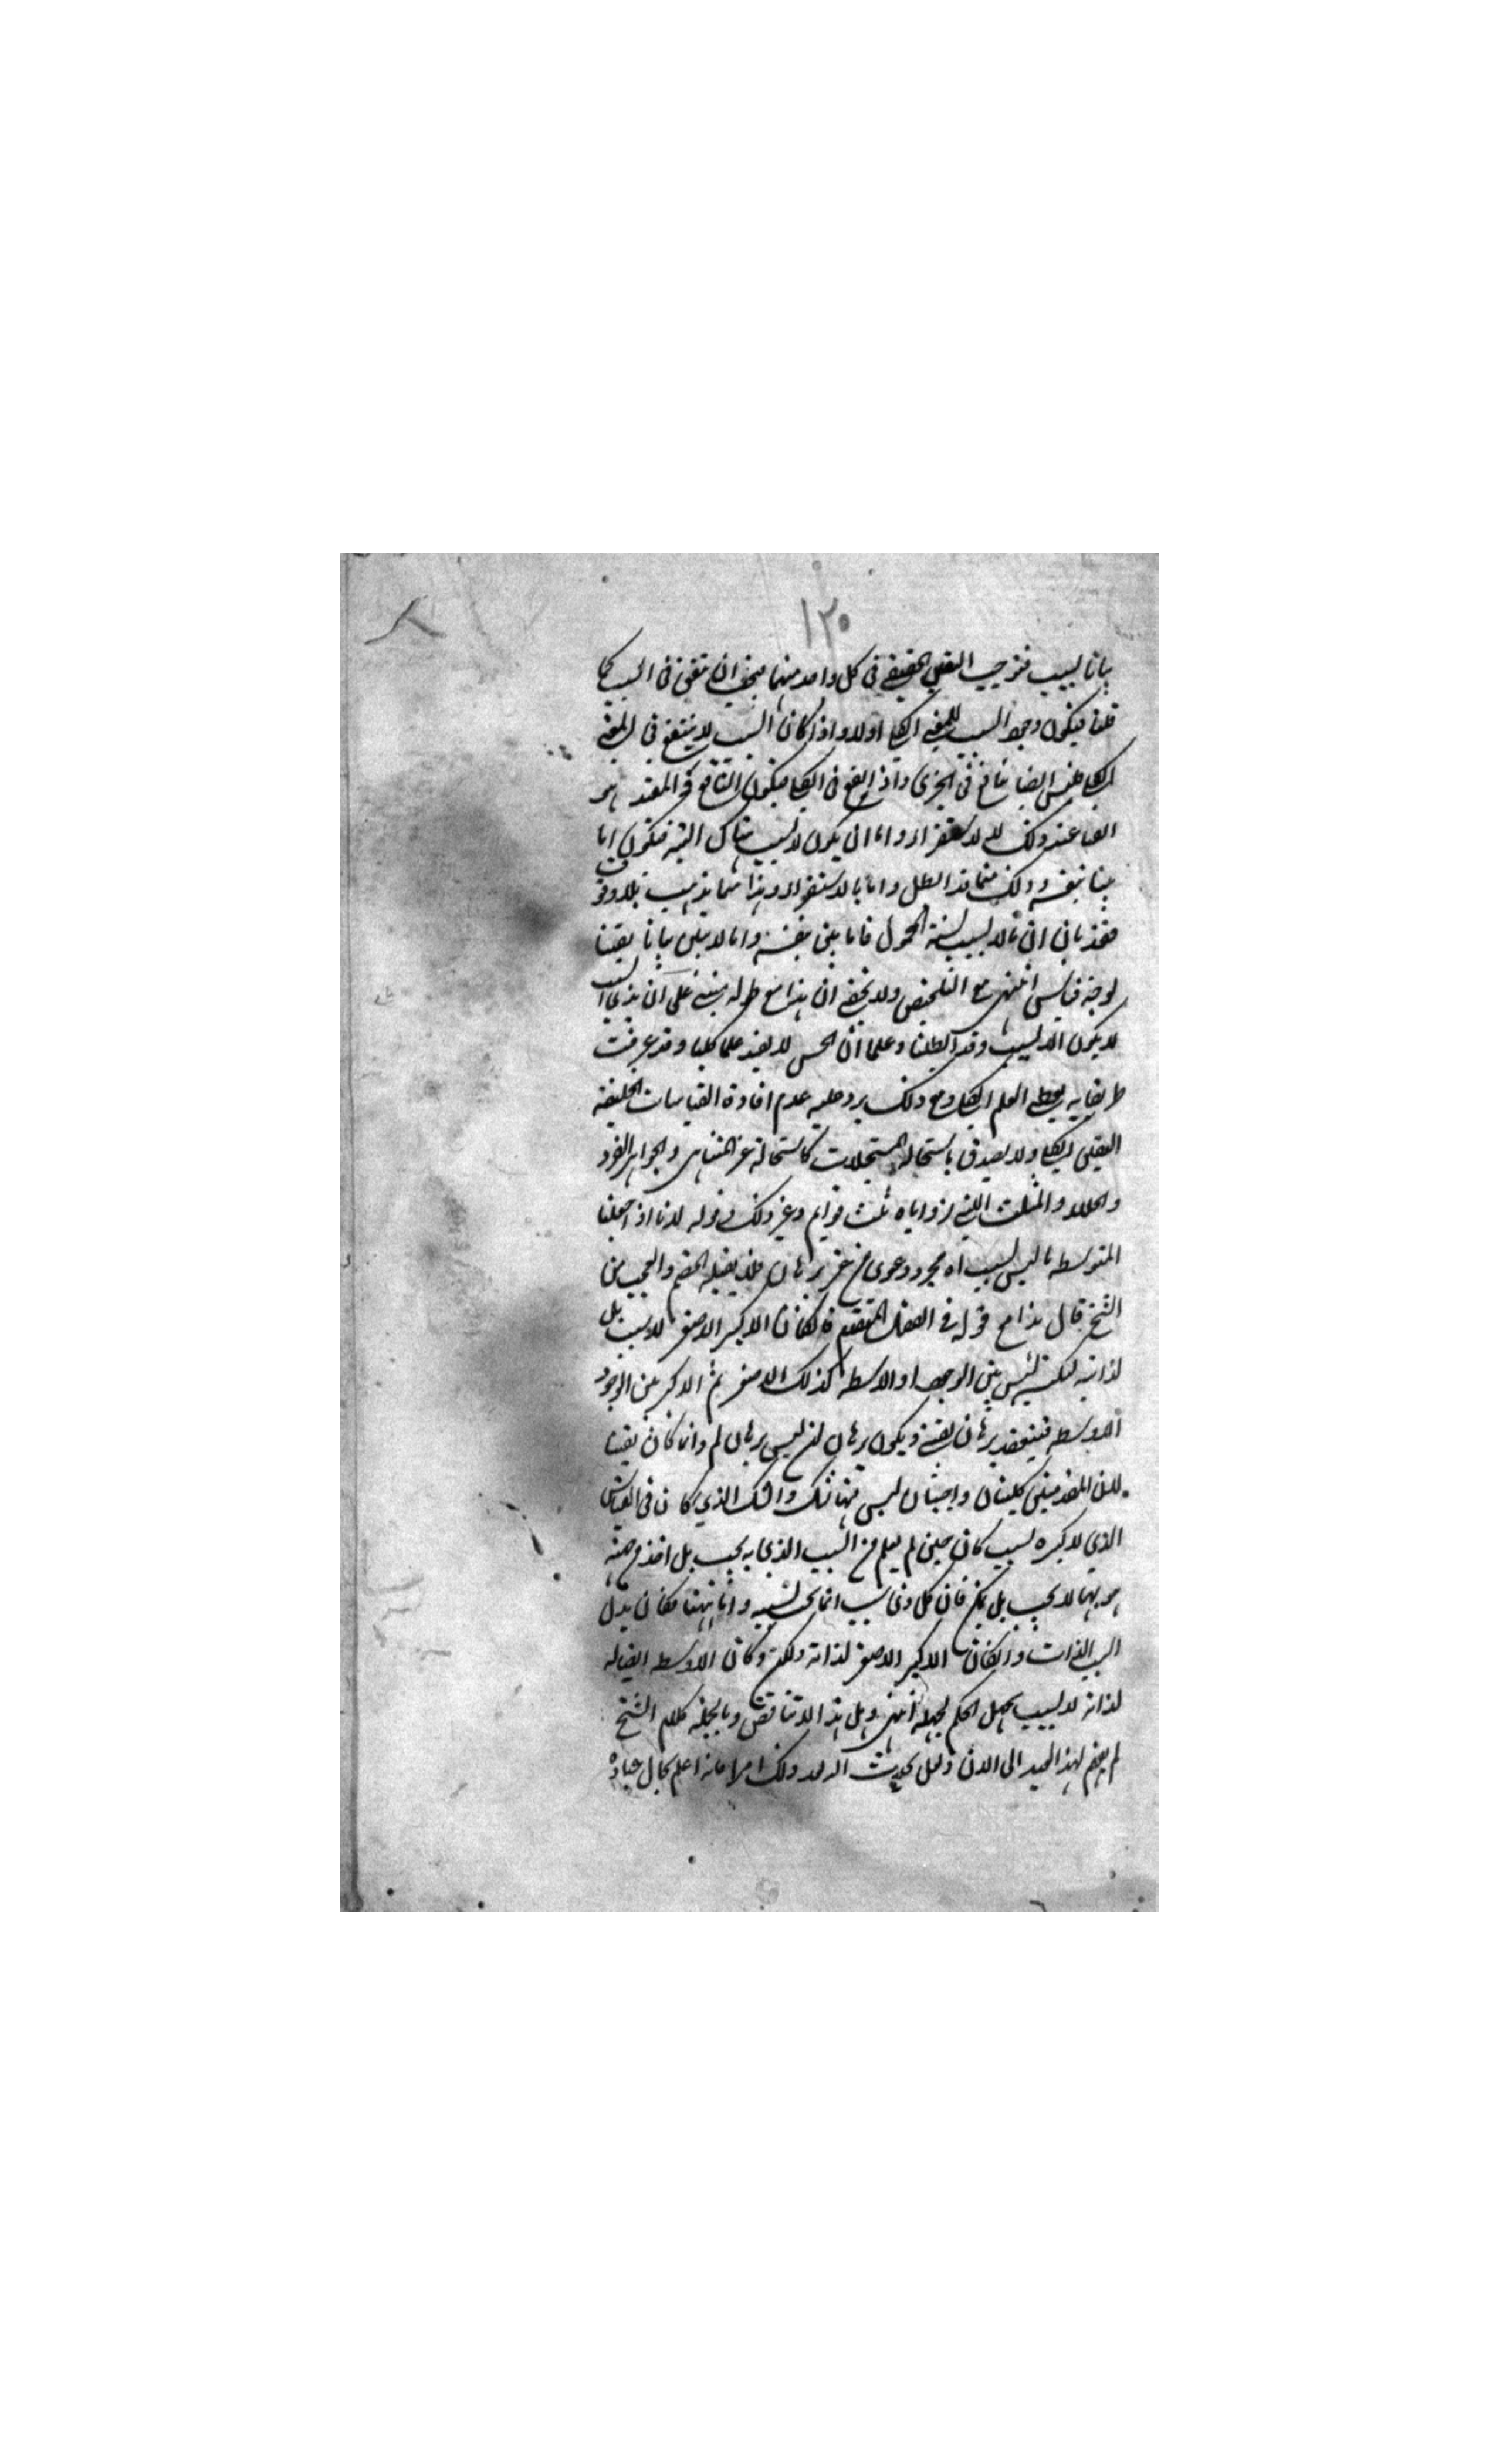 ١٢٠
بانا لسبب فتوجيب اليقين الحقيقي في كل واحد منهما فيجب ان يتفق في السبب كما
قلنا فيكون وجه السبب للمعنى الكلي اولا واذا كان السبب لا ينفع في المعنى
الكلي فليس ايضا بنافع في الجزئي واذ نفع في الكلي فيكون النافع في المقدمتين هو
القياس عند ذلك لا الاستقراء واما ان يكون لا سبب هناك البتة فيكون اما
بينا بنفسه وذلك مما قد ابطل واما بالاستقراء وهذا مما يذهب بلا وقوف
فقد بان ان ما لا سبب لنسبة المحمول فاما بين بنفسه واما لا يبين بيانا يقينا
لوجه قياسي انتهى مع التلخيص ولا يخفى ان هذا مع طوله مبني على ان ذي السبب
لا يكون الا لسبب وقد ابطلنا وعلى ان الحس لا يفيد علما كليا وقد عرفت
طريقا به يعطي العلم الكلي ومع ذلك يرد عليه عدم افادة القياسات الخلفية
اليقين الكلي ولا يصدق باستحالة المستحيلات كاستحالة غير المتناهي والجواهر الفرد
والخلاء والمثلث اللتي زواياه ثلث قوايم وغير ذلك وقوله لانا اذا جعلنا
المتوسط ما ليس بسبب اه مجرد دعوى من غير برهان فلا يقبله الخصم والعجب من
الشيخ قال هذا مع قوله في الفصل المتقدم فان كان الاكبر للاصغر لا بسبب بل
لذاته لكنه ليس بين الوجود له والاوسط كذلك للاصغر ثم الاكبر بين الوجود
للاوسط فينعقد برهان يقيني ويكون برهان ان ليس برهان لم وانما كان يقينا
لان المقدمتين كليتان واجبتان ليس فيهما شك والشك الذي كان في القياس
الذي لاكبره سبب كان حين لم يعلم من السبب الذي به يجب بل اخذ من جهة
هو بها لا يجب بل يمكن فان كل ذي سبب انما يجب بسببه واما ههنا فكان بدل
السبب الذات وان كان الاكبر للاصغر لذاته ولكن وكان الاوسط ايضا له
لذاته لا لسبب يجهل الحكم بجهله انتهى وهل هذا الا تناقض وبالجملة كلام الشيخ
لم يفهم لهذا العبد الى الان ولعل يحدث الله بعد ذلك امرا فانه اعلم بحال عباده